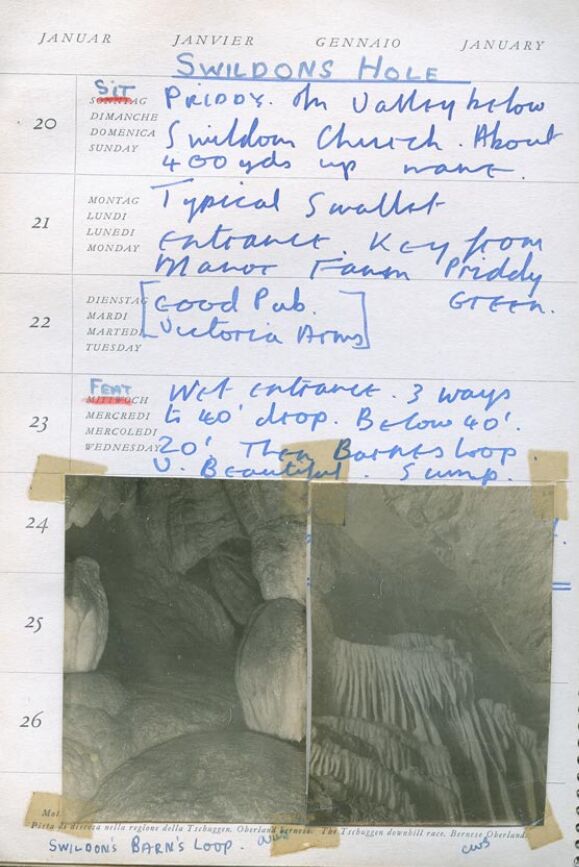 JANUAR JANVIER GENNAIO JANUARY
SWILDONS HOLE
SIT
SONNTAG
DIMANCHE
DOMENICA
SUNDAY
20
PRIDDY. In Valley below
Swildon Church. About
400 yds up
21
MONTAG
LUNDI
LUNEDI
MONDAY
Typical Swallet
entrance. Key from
Manor Farm Priddy
GREEN.
22
DIENSTAG
MARDI
MARTEDI
TUESDAY
[Good Pub.
Victoria Arms]
FEAT
MITTWOCH
MERCREDI
MERCOLEDI
WEDNESDAY
23
Wet entrance. 3 ways
to 40' drop. Below 40'.
20'. Then Barnes Loop.
V. Beautiful. Sump.
24
25
26
Pista di discesa nella regione della Tschuggen. Oberland bernese. The Tschuggen downhill race. Bernese Oberland.
SWILDON'S BARN'S LOOP.
cws